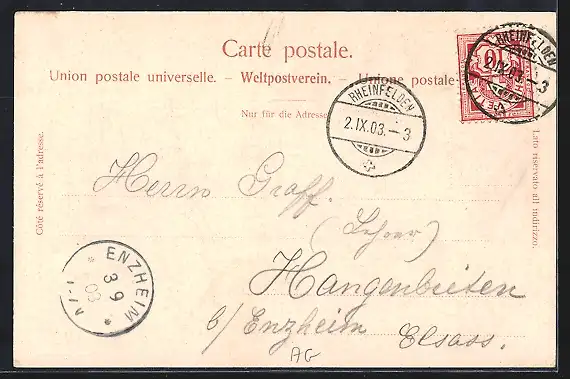 Carte postale.
Union postale universelle. – Weltpostverein. – Unione postale
Nur für die Adresse
RHEINFELDEN
2.IX.03.–3
RHEINFELDEN
2.IX.03.–3
10
Côté réservé à l'adresse.
Lato riservato all indirizzo.
Herrn Graff.
(Lehrer)
Hangenbieten
b/Enzheim Elsass.
ENZHEIM
3 9
03
AG